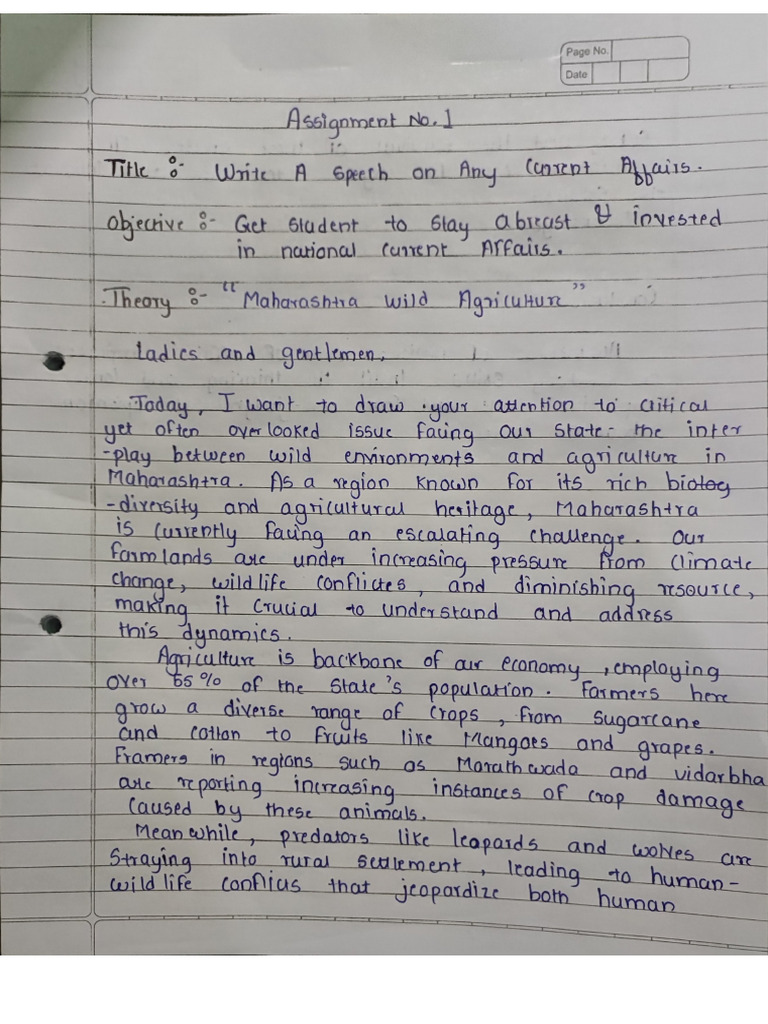 Page No.
Date
Assignment No. 1
Title :- Write A Speech on Any Current Affairs.
Objective :- Get Student to Stay abreast & invested
in national current Affairs.
Theory :- "Maharashtra Wild Agriculture"
Ladies and gentlemen,
Today, I want to draw your attention to critical
yet often overlooked issue facing our state - the inter
-play between wild environments and agriculture in
Maharashtra. As a region known for its rich biolog
-diversity and agricultural heritage, Maharashtra
is currently facing an escalating challenge. Our
farmlands are under increasing pressure from climate
change, wildlife conflictes, and diminishing resource,
making it crucial to understand and address
this dynamics.
Agriculture is backbone of our economy, employing
over 55% of the state's population. Farmers here
grow a diverse range of crops, from sugarcane
and cotton to fruits like Mangoes and grapes.
Framers in regions such as Marathwada and vidarbha
are reporting increasing instances of crop damage
caused by these animals.
Meanwhile, predators like leopards and wolves are
straying into rural settlement, leading to human-
wildlife conflicts that jeopardize both human